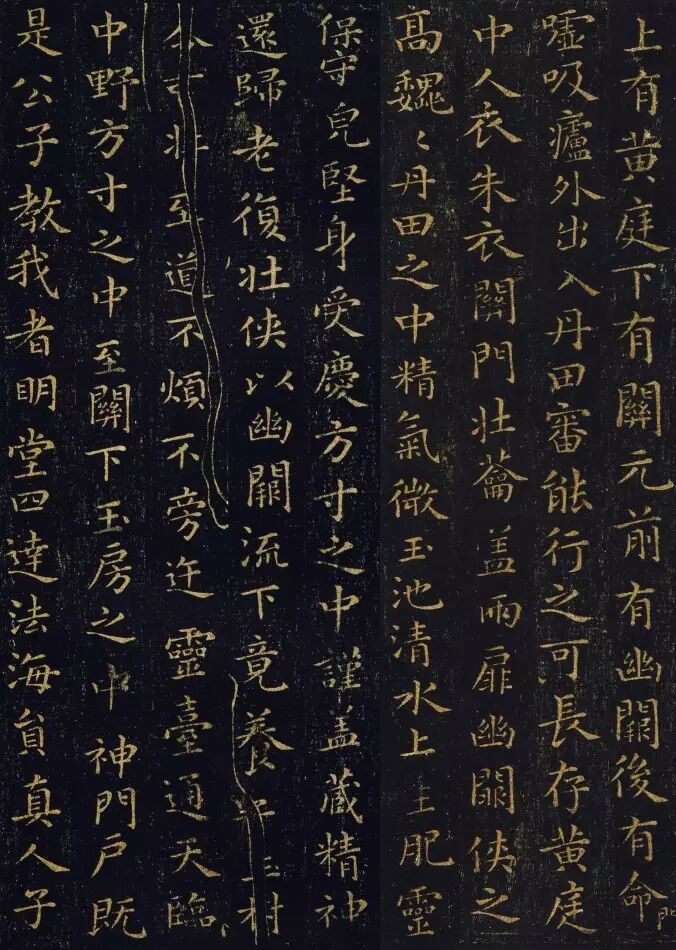 上有黄庭下有關元前有幽闕後有命門
噓吸廬外出入丹田審能行之可長存黄庭
中人衣朱衣關門壯蘥盖兩扉幽闕俠之
高魏〻丹田之中精氣微玉池清水上生肥靈
保守皃堅身受慶方寸之中謹盖藏精神
還歸老復壯俠以幽闕流下竟養子玉樹
不可杖至道不煩不旁迕靈臺通天臨
中野方寸之中至關下玉房之中神門戶既
是公子教我者明堂四達法海員真人子